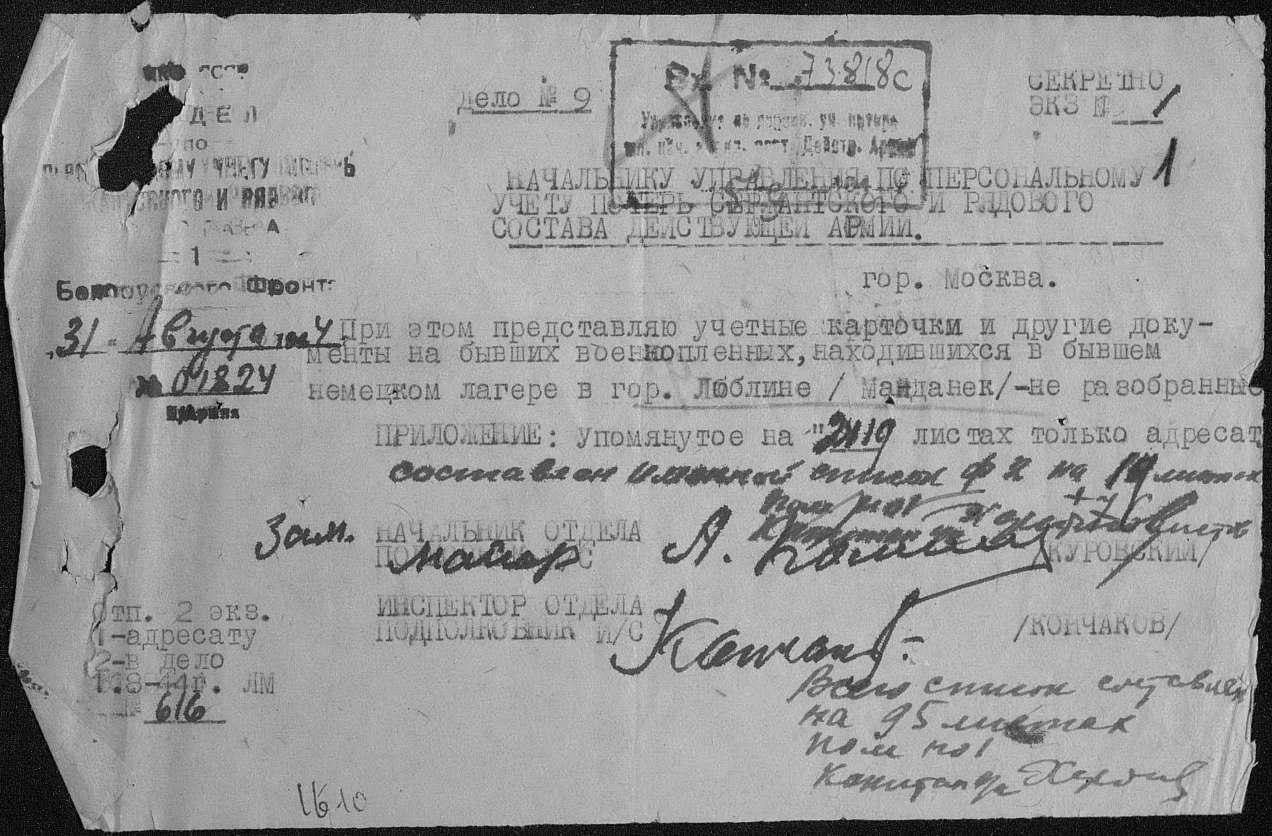 НКО СССР
ОТДЕЛ
по
УЧЕТУ ПОТЕРЬ
И РЯДОВОГО
СОСТАВА
1
Белорусского Фронта
31 Августа 1944
№ 01824
Дело № 9
Вх № 73818с
СЕКРЕТНО
ЭКЗ № 1
1
НАЧАЛЬНИКУ УПРАВЛЕНИЯ ПО ПЕРСОНАЛЬНОМУ
УЧЕТУ ПОТЕРЬ СЕРЖАНТСКОГО И РЯДОВОГО
СОСТАВА ДЕЙСТВУЮЩЕЙ АРМИИ.
гор. Москва.
При этом представляю учетные карточки и другие доку-
менты на бывших военнопленных, находившихся в бывшем
немецком лагере в гор. Люблине / Манданек/-не разобранные
ПРИЛОЖЕНИЕ: Упомянутое на "2419 листах только адресат
составлен именной список на 19 листах
Зам. НАЧАЛЬНИК ОТДЕЛА
майор
/КУРОВСКИЙ/
ИНСПЕКТОР ОТДЕЛА
ПОДПОЛКОВНИК И/С
/КОНЧАКОВ/
Отп. 2 экз.
1-адресату
2-в дело
8-44г. ЛМ
№ 616
Всего список составлен
на 95 листах
пом но1
Капитан